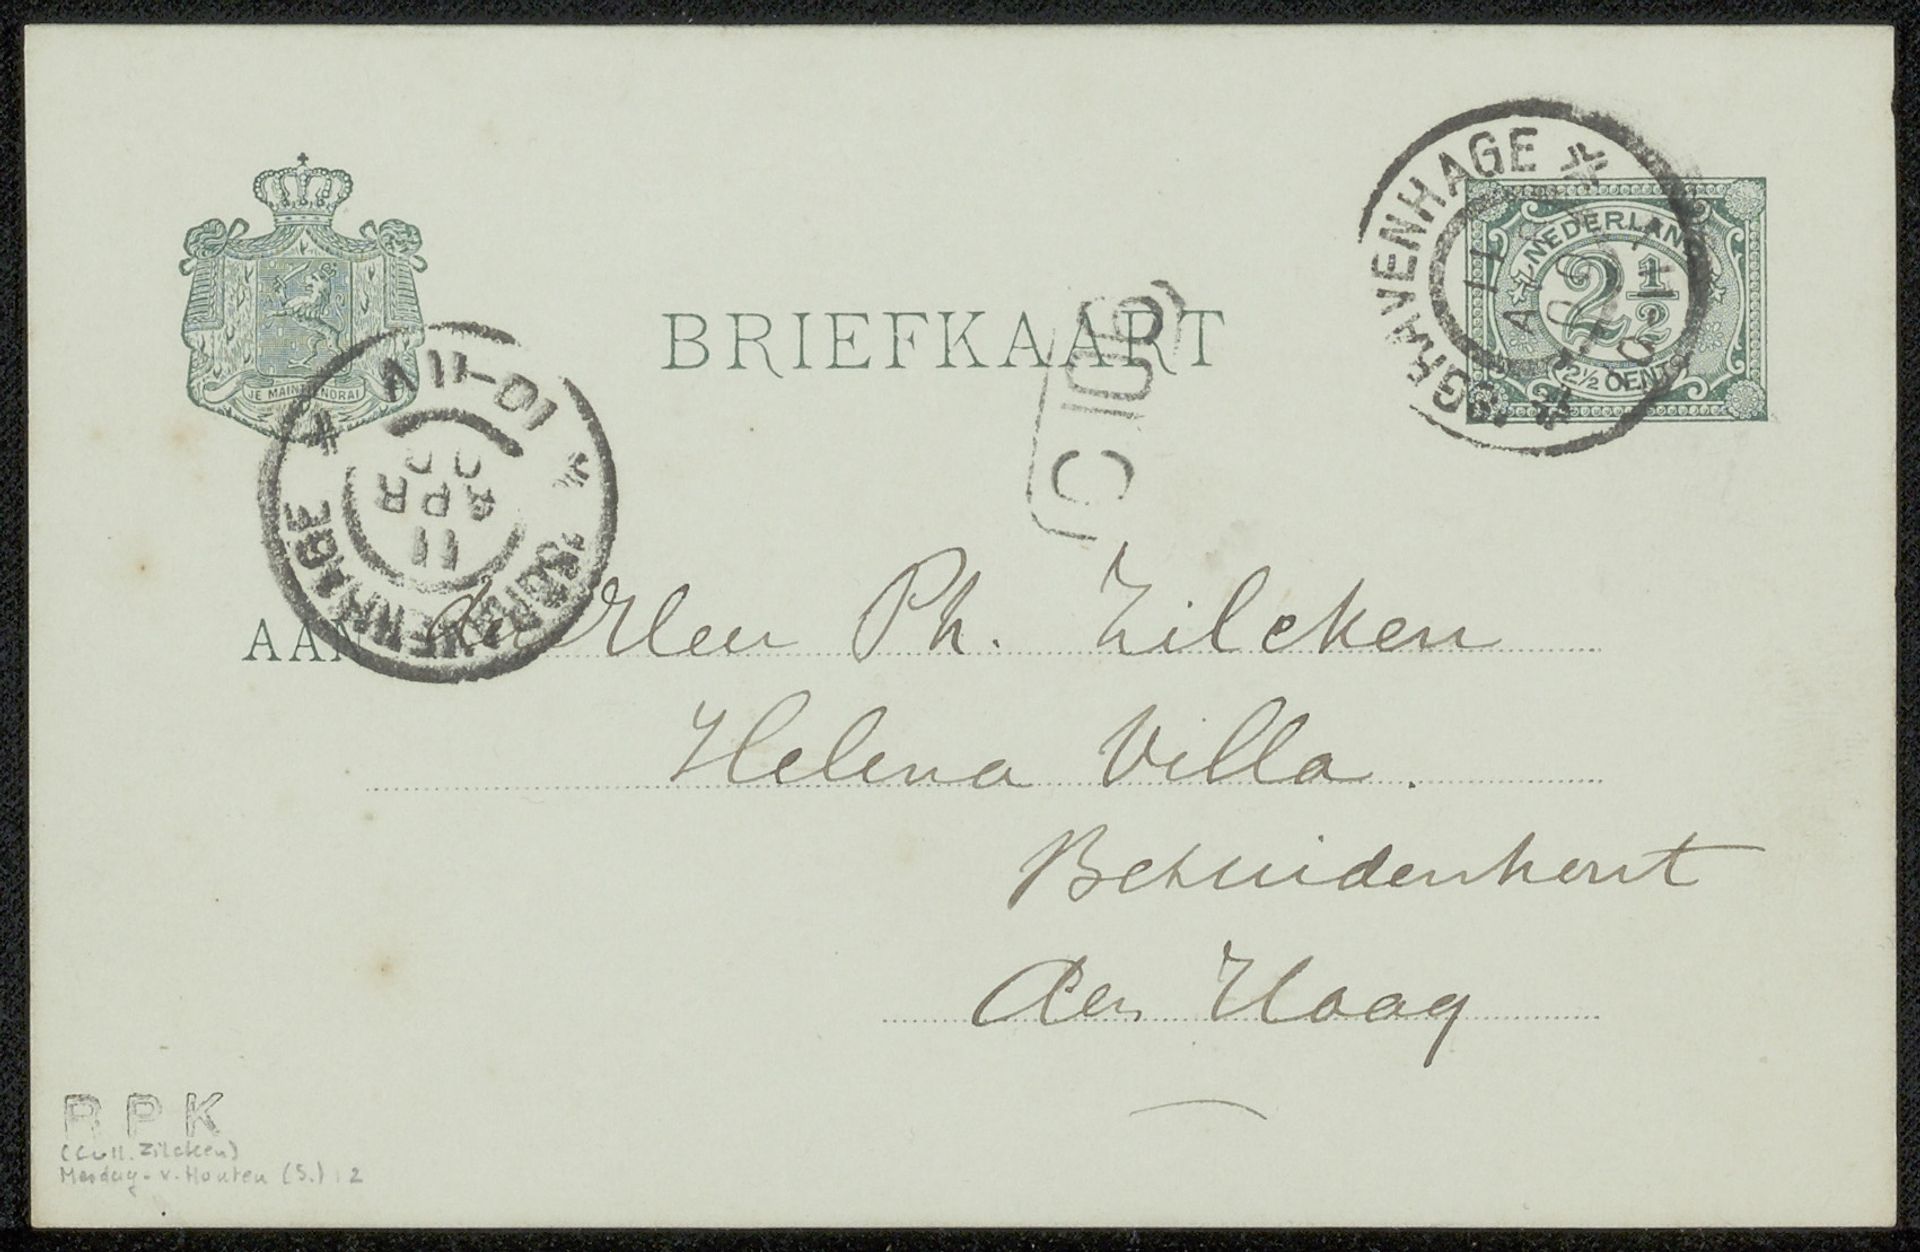 'SGRAVENHAGE
11
NEDERLAND
2 1/2
2½ CENT
JE MAINTIENDRAI
BRIEFKAART
10-11V
11
APR
00
'SGRAVENHAGE
AAN den Heer Ph. Zilcken
Helena Villa.
Bezuidenhout
den Haag
RPK
(Coll. Zilcken)
Mesdag-v. Houten (S.): 2